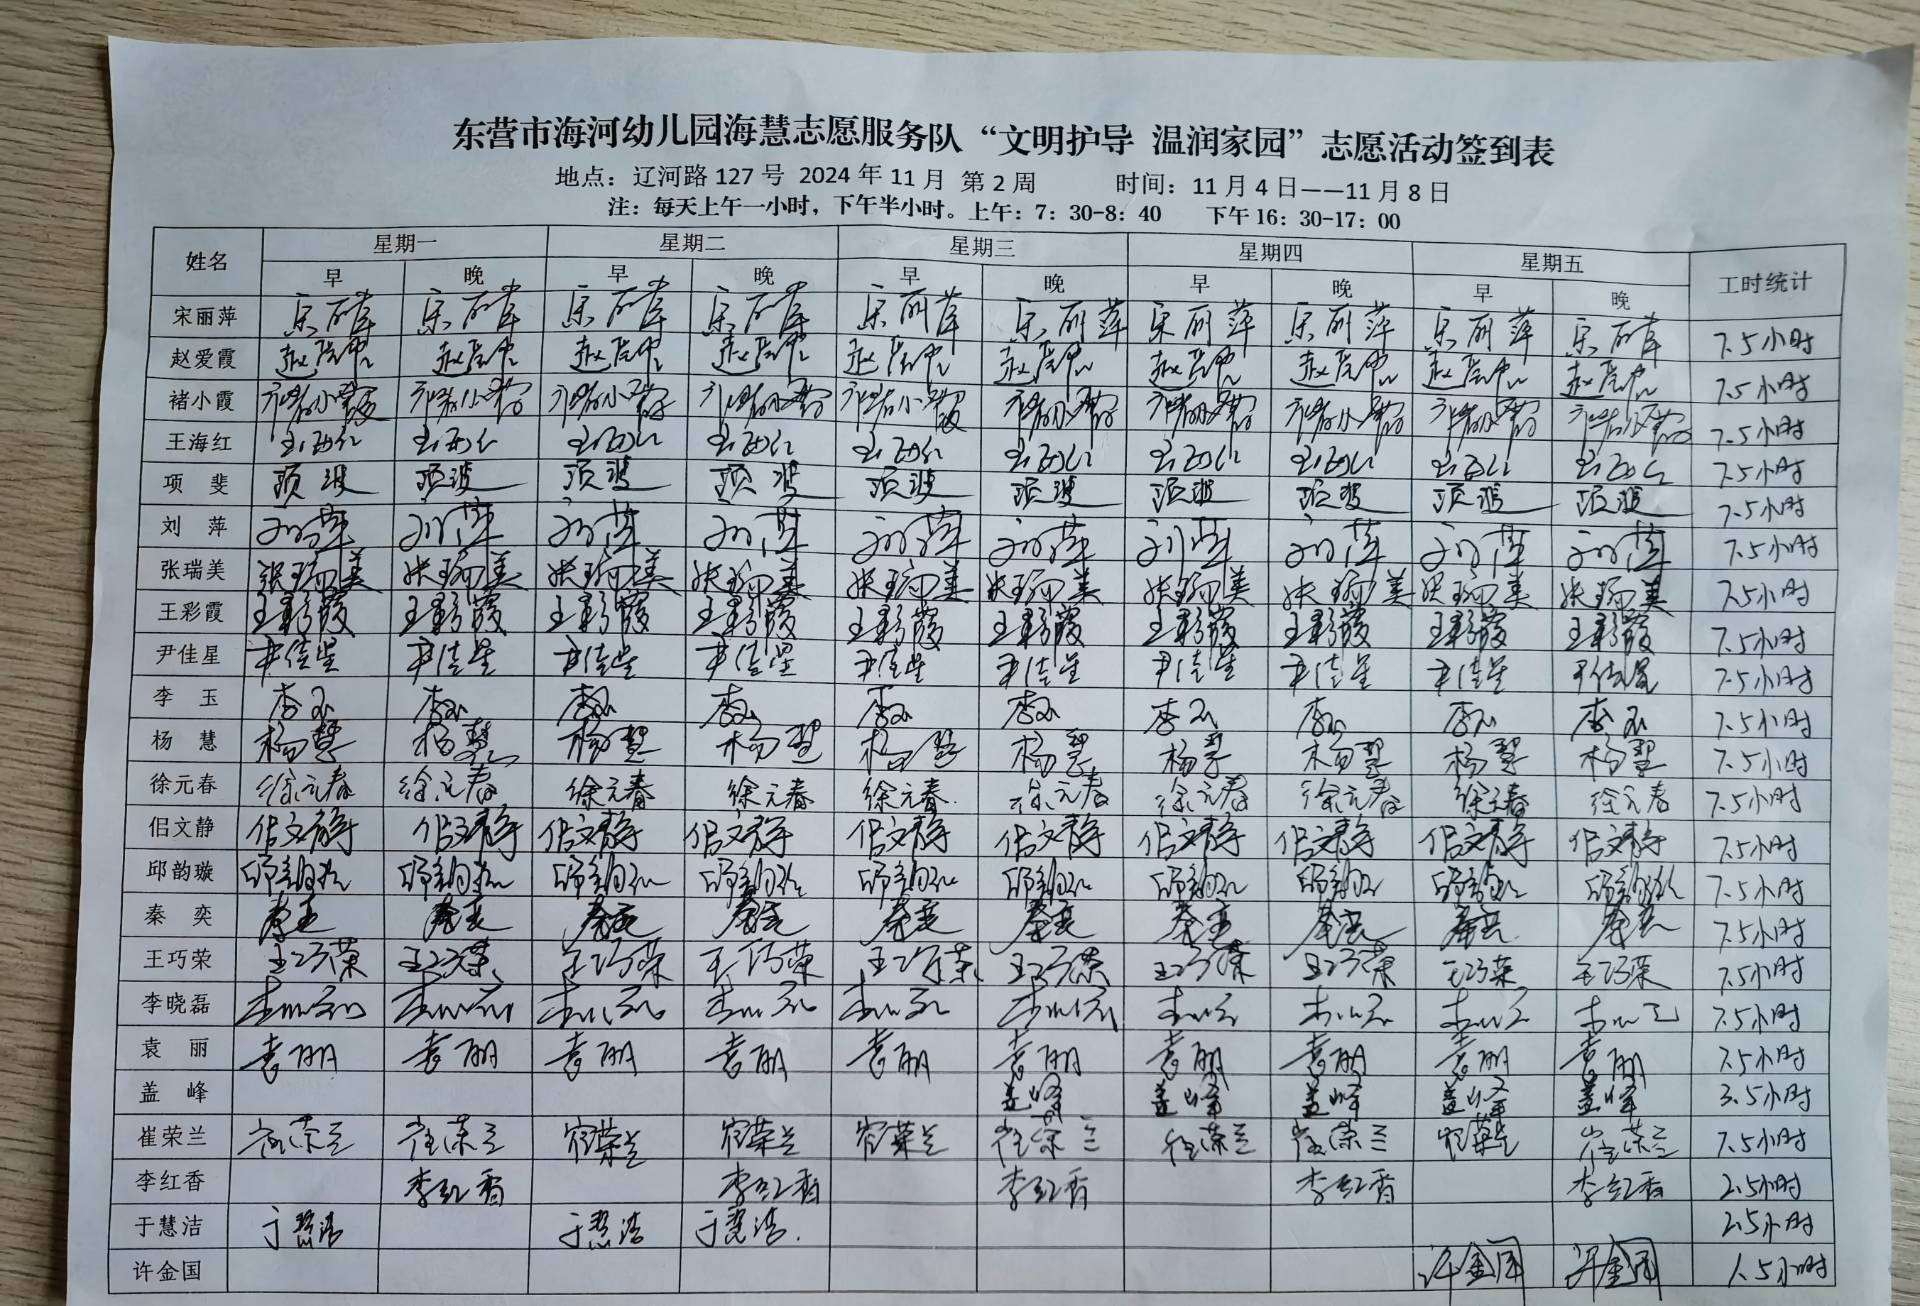 东营市海河幼儿园海慧志愿服务队“文明护导 温润家园”志愿活动签到表
地点：辽河路 127 号 2024 年 11 月 第 2 周 时间：11 月 4 日——11 月 8 日
注：每天上午一小时，下午半小时。上午：7：30-8：40 下午 16：30-17：00
姓名 星期一 星期二 星期三 星期四 星期五 工时统计
早 晚 早 晚 早 晚 早 晚 早 晚
宋丽萍 宋丽萍 宋丽萍 宋丽萍 宋丽萍 宋丽萍 宋丽萍 宋丽萍 宋丽萍 宋丽萍 宋丽萍 7.5小时
赵爱霞 7.5小时
褚小霞 褚小霞 褚小霞 褚小霞 褚小霞 褚小霞 褚小霞 褚小霞 褚小霞 褚小霞 褚小霞 7.5小时
王海红 7.5小时
项 斐 7.5小时
刘 萍 刘萍 刘萍 刘萍 刘萍 刘萍 刘萍 刘萍 刘萍 刘萍 刘萍 7.5小时
张瑞美 张瑞美 张瑞美 张瑞美 张瑞美 张瑞美 张瑞美 张瑞美 张瑞美 张瑞美 张瑞美 7.5小时
王彩霞 王彩霞 王彩霞 王彩霞 王彩霞 王彩霞 王彩霞 王彩霞 王彩霞 王彩霞 王彩霞 7.5小时
尹佳星 尹佳星 尹佳星 尹佳星 尹佳星 尹佳星 尹佳星 尹佳星 尹佳星 尹佳星 尹佳星 7.5小时
李 玉 李玉 李玉 李玉 李玉 李玉 李玉 李玉 李玉 李玉 李玉 7.5小时
杨 慧 杨慧 杨慧 杨慧 杨慧 杨慧 杨慧 杨慧 杨慧 杨慧 杨慧 7.5小时
徐元春 徐元春 徐元春 徐元春 徐元春 徐元春 徐元春 徐元春 徐元春 徐元春 徐元春 7.5小时
佀文静 佀文静 佀文静 佀文静 佀文静 佀文静 佀文静 佀文静 佀文静 佀文静 佀文静 7.5小时
邱韵璇 7.5小时
秦 奕 秦奕 秦奕 秦奕 秦奕 秦奕 秦奕 秦奕 秦奕 秦奕 秦奕 7.5小时
王巧荣 王巧荣 王巧荣 王巧荣 王巧荣 王巧荣 王巧荣 王巧荣 王巧荣 王巧荣 王巧荣 7.5小时
李晓磊 7.5小时
袁 丽 袁丽 袁丽 袁丽 袁丽 袁丽 袁丽 袁丽 袁丽 袁丽 袁丽 7.5小时
盖 峰 盖峰 盖峰 盖峰 盖峰 盖峰 3.5小时
崔荣兰 崔荣兰 崔荣兰 崔荣兰 崔荣兰 崔荣兰 崔荣兰 崔荣兰 崔荣兰 崔荣兰 崔荣兰 7.5小时
李红香 李红香 李红香 李红香 李红香 李红香 2.5小时
于慧洁 于慧洁 于慧洁 于慧洁 2.5小时
许金国 许金国 许金国 1.5小时